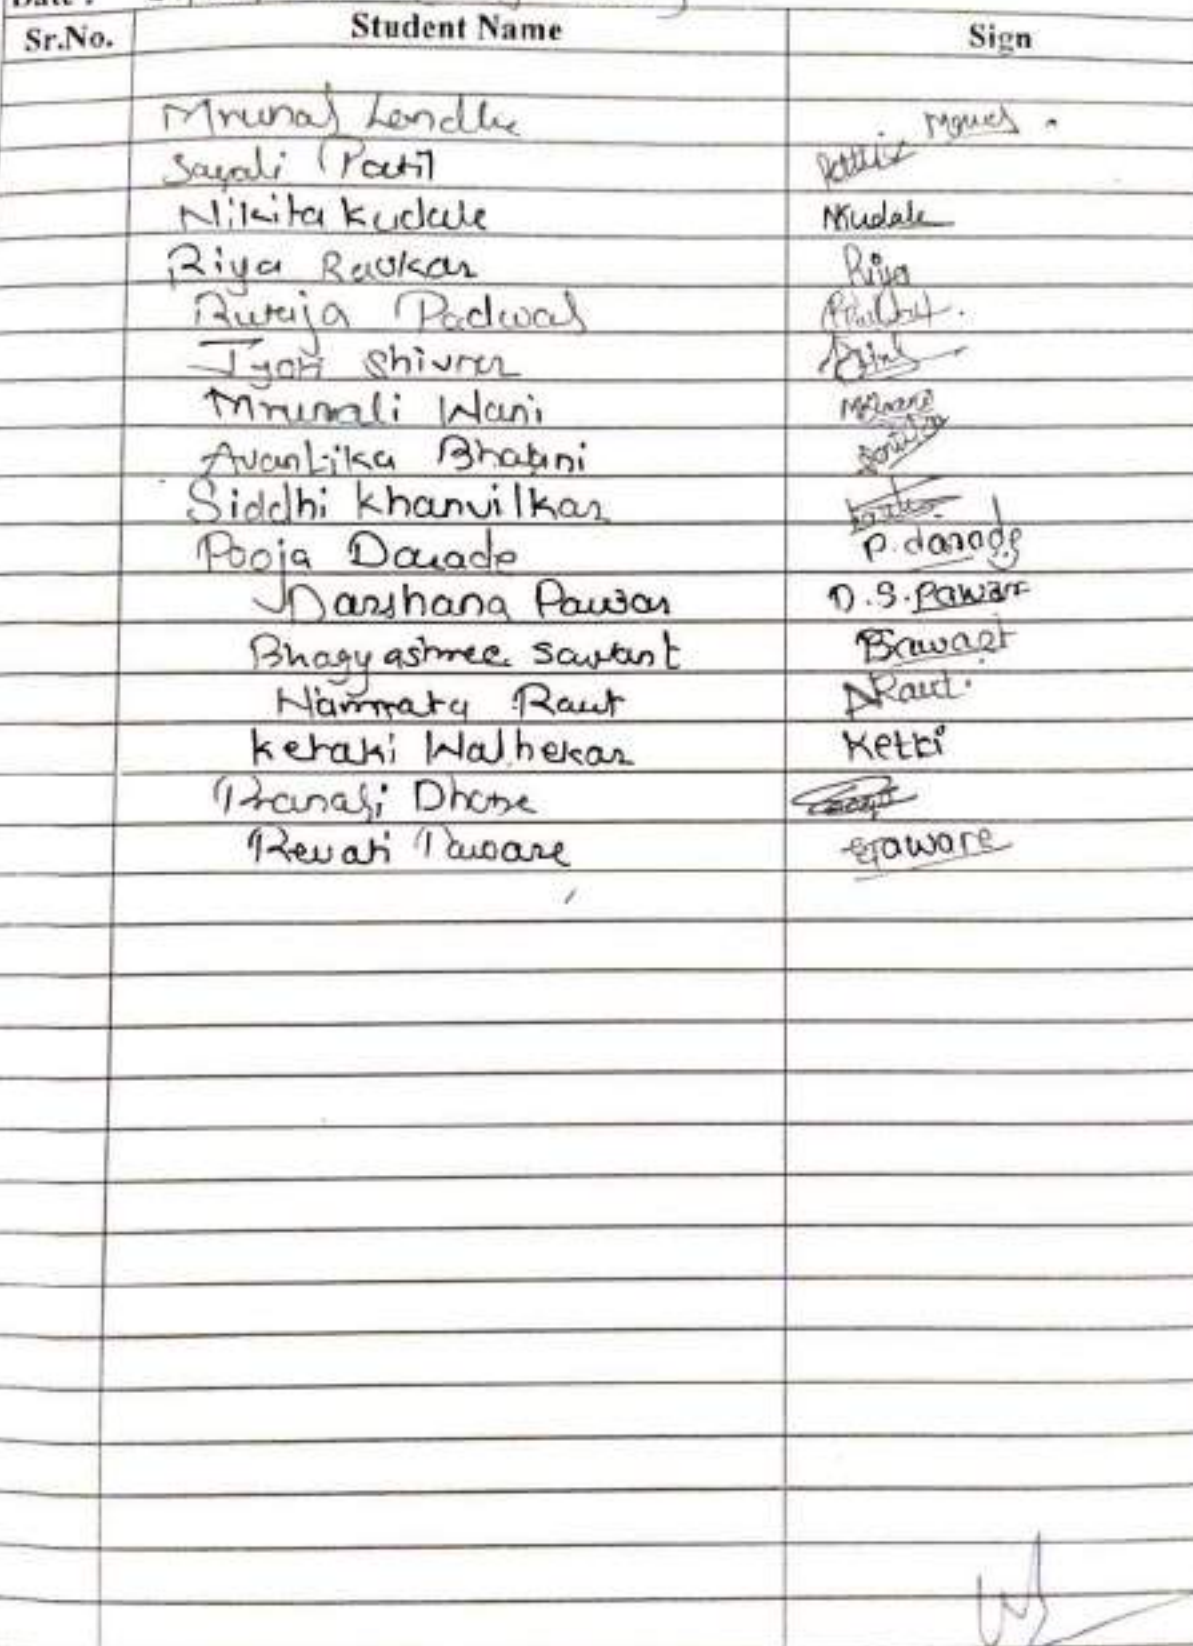 Date :
Sr.No. Student Name Sign
Mrunal Londhe
Sayali Patil
Nikita Kudale NKudale
Riya Ravkar Riya
Rutuja Padwal
Jyoti Shivrer
Mrunali Wani
Avantika Bhatini
Siddhi Khanvilkar
Pooja Darade P. darade
Darshana Pawar D.S. Pawar
Bhagyashree Sawant BSawant
Namrata Raut NRaut.
Ketaki Walhekar Ketki
Pranali Dhone
Revati Taware Taware